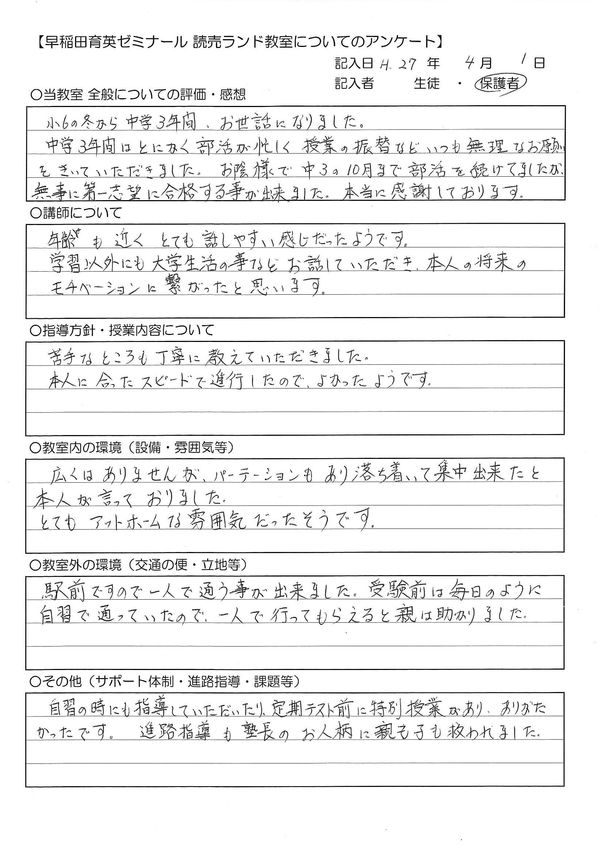 【早稲田育英ゼミナール 読売ランド教室についてのアンケート】
記入日 H.27 年 4 月 1 日
記入者 生徒 ・ 保護者
〇当教室 全般についての評価・感想
小6の冬から中学3年間、お世話になりました。
中学3年間はとにかく部活が忙しく 授業の振替など いつも無理なお願い
をきいていただきました。お陰様で中3の10月まで部活を続けてましたが、
無事に第一志望に合格する事が出来ました。本当に感謝しております。
〇講師について
年齢も近く とても話しやすい感じだったようです。
学習以外にも大学生活の事など お話していただき、本人の将来の
モチベーションに繋がったと思います。
〇指導方針・授業内容について
苦手なところも丁寧に教えていただきました。
本人に合ったスピードで進行したので、よかったようです。
〇教室内の環境（設備・雰囲気等）
広くはありませんが、パーテーションもあり落ち着いて集中出来たと
本人が言っておりました。
とてもアットホームな雰囲気だったそうです。
〇教室外の環境（交通の便・立地等）
駅前ですので一人で通う事が出来ました。受験前は毎日のように
自習で通っていたので、一人で行ってもらえると親は助かりました。
〇その他（サポート体制・進路指導・課題等）
自習の時にも指導していただいたり、定期テスト前に特別授業があり、ありがた
かったです。 進路指導も塾長のお人柄に親も子も救われました。